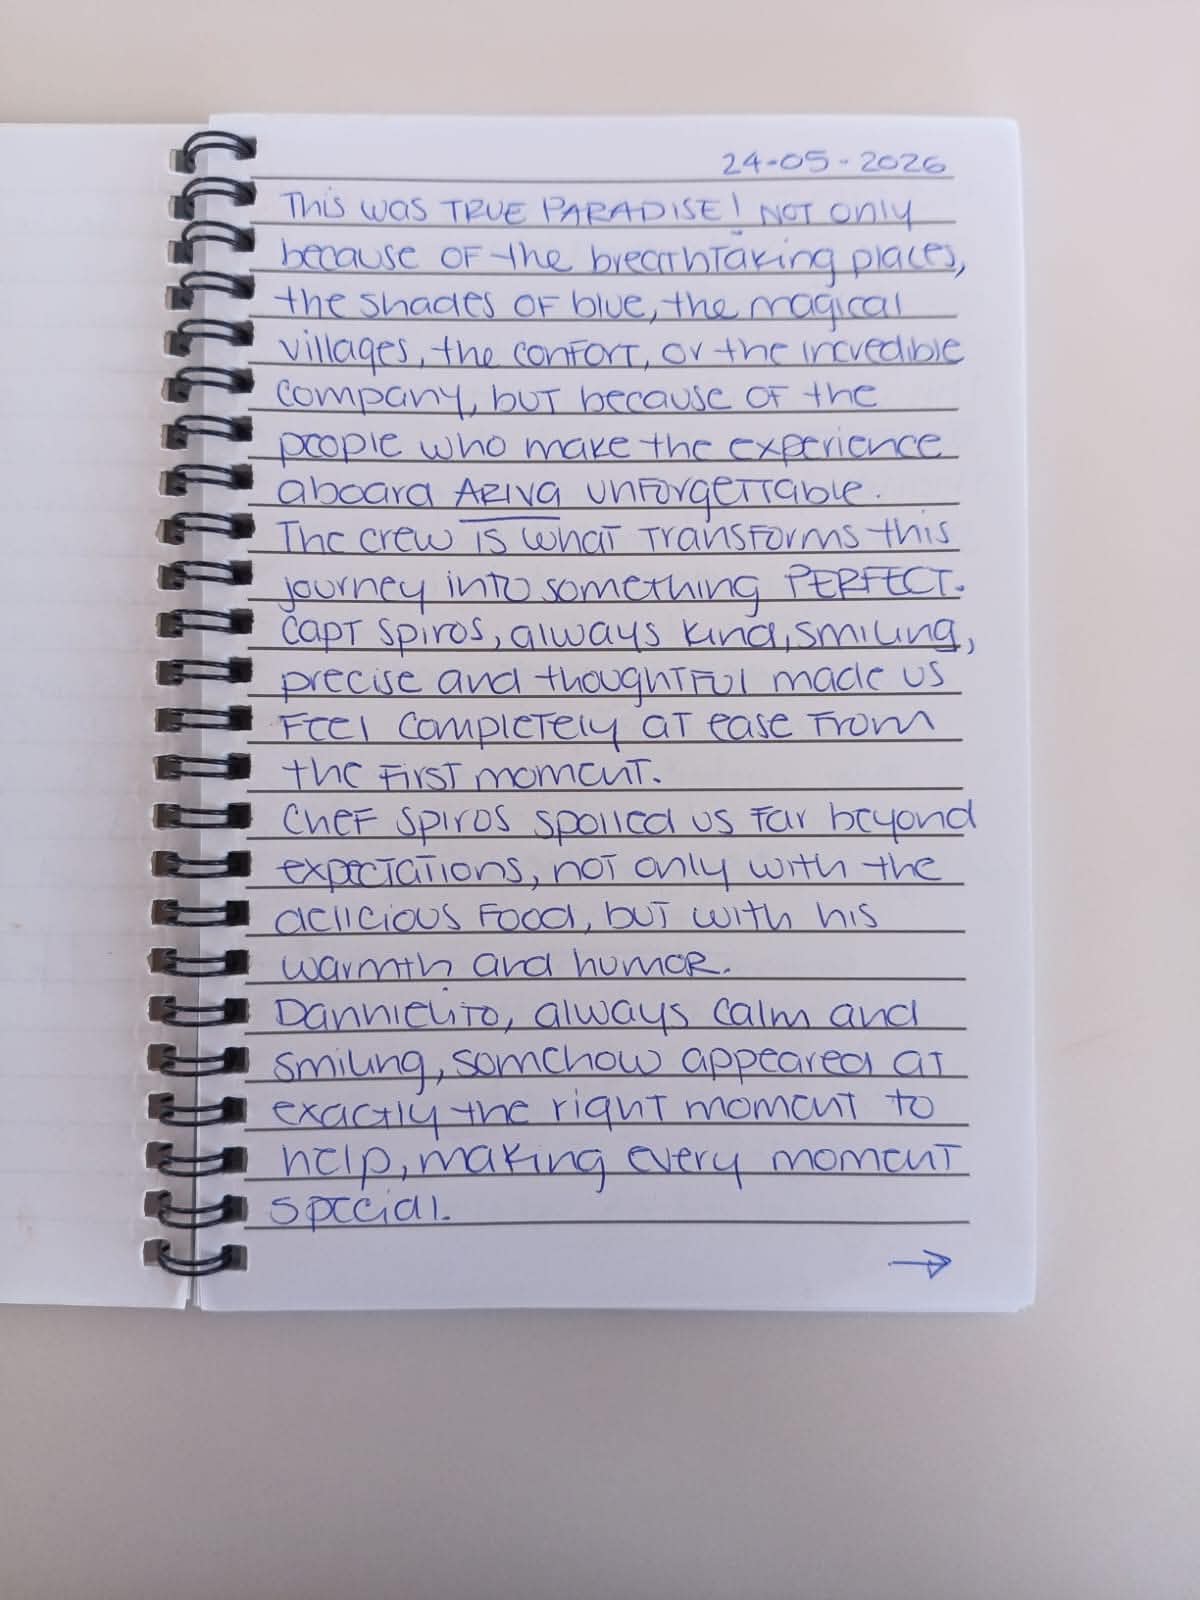 24-05-2026
This was TRUE PARADISE! NOT only
because of the breathtaking places,
the shades of blue, the magical
villages, the confort, or the incredible
company, but because of the
people who make the experience
aboard ARIVA unforgettable.
The crew is what transforms this
journey into something PERFECT.
Capt Spiros, always kind, smiling,
precise and thoughtful made us
feel completely at ease from
the first moment.
Chef Spiros spoiled us far beyond
expectations, not only with the
delicious food, but with his
warmth and humor.
Dannielito, always calm and
smiling, somehow appeared at
exactly the right moment to
help, making every moment
special.
→